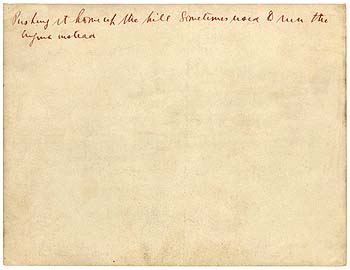 Pushing it home up the hill Sometimes used to run the
engine instead